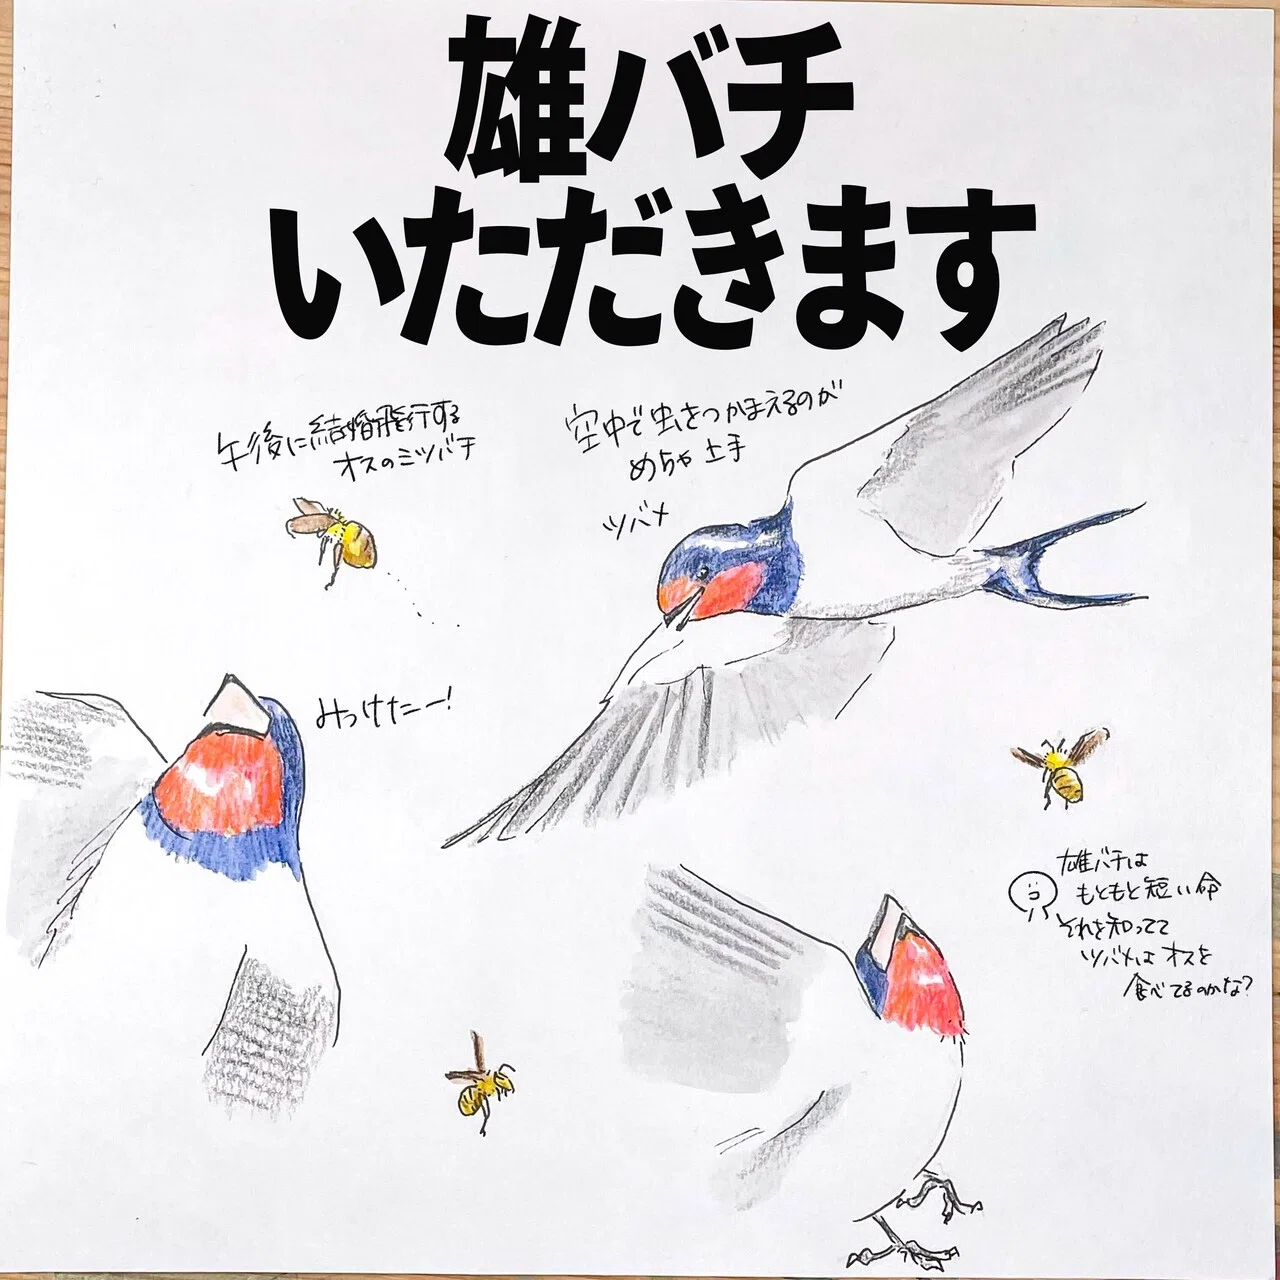 雄バチ
いただきます
午後に結婚飛行する
オスのミツバチ
空中で虫をつかまえるのが
めちゃ上手
ツバメ
みっけたー!
雄バチは
もともと短い命
それを知ってて
ツバメはオスを
食べてるのかな?